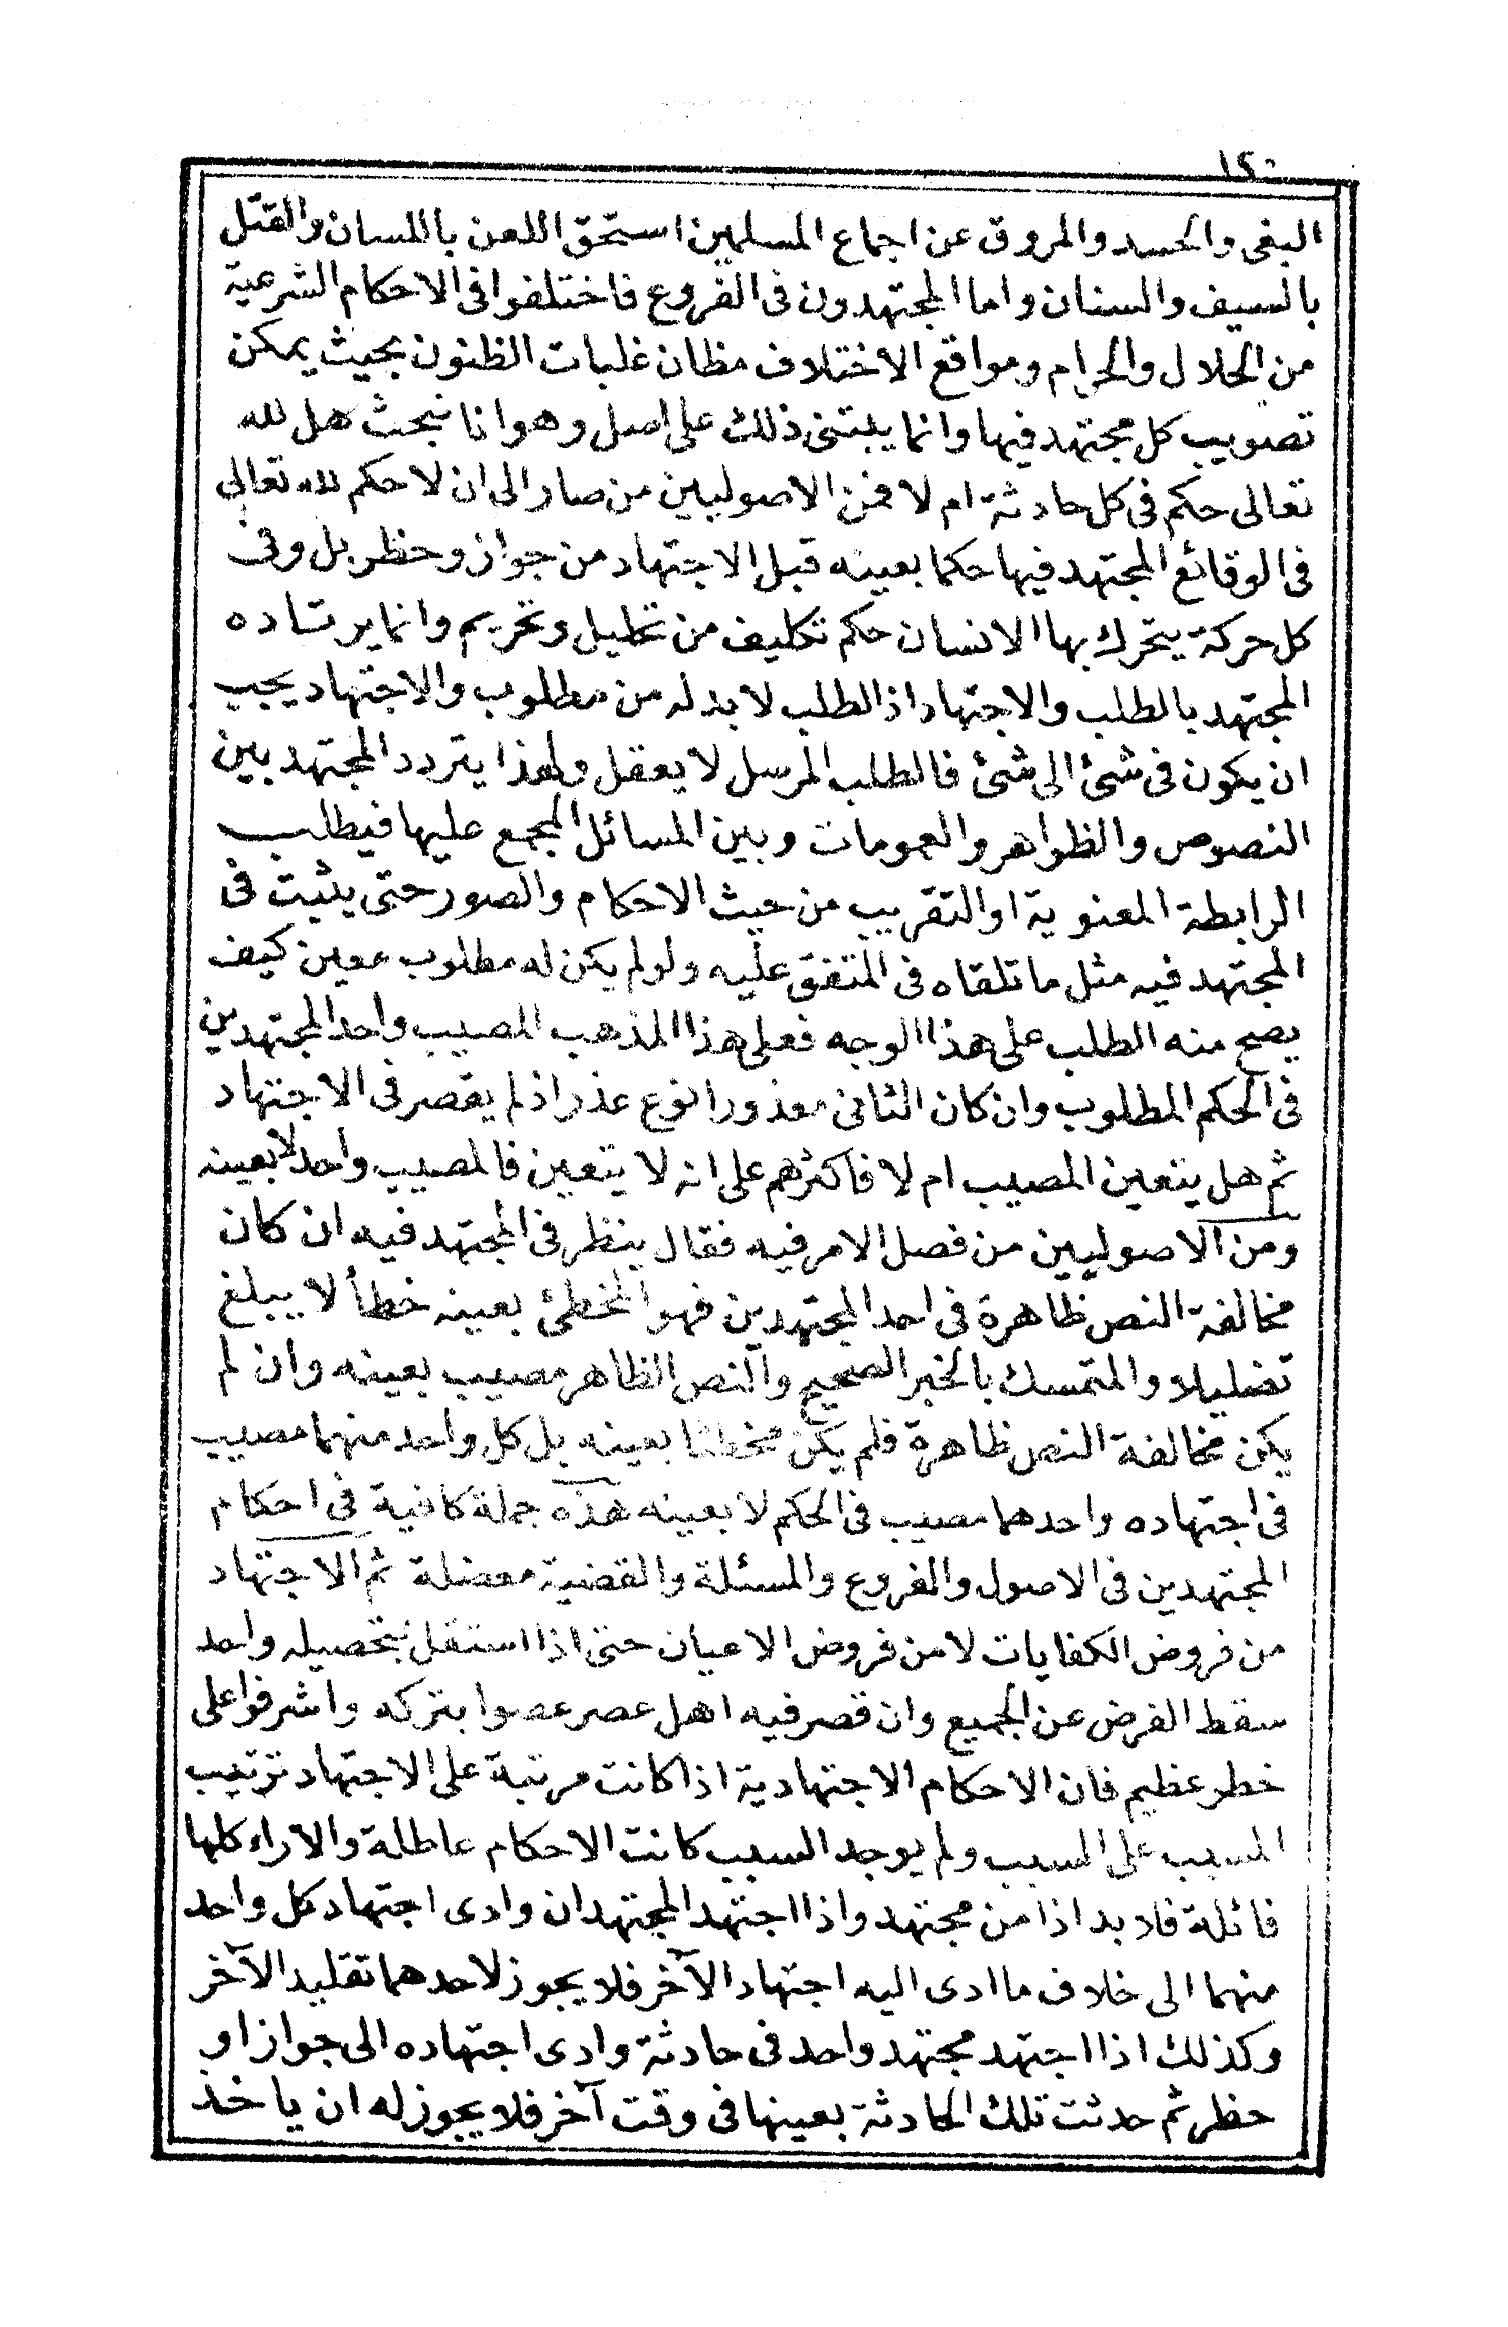 ١٤٠
البغى والحسد والمروق عن اجماع المسلمين استحق اللعن باللسان والقتل
بالسيف والسنان واما المجتهدون فى الفروع فاختلفوا فى الاحكام الشرعية
من الحلال والحرام ومواقع الاختلاف مظان غلبات الظنون بحيث يمكن
تصويب كل مجتهد فيها وانما يبتنى ذلك على اصل وهو انا نبحث هل لله
تعالى حكم فى كل حادثة ام لا فمن الاصوليين من صار الى ان لا حكم لله تعالى
فى الوقائع المجتهد فيها حكما بعينه قبل الاجتهاد من جواز وحظر بل وفى
كل حركة يتحرك بها الانسان حكم تكليف من تحليل وتحريم وانما يرتاده
المجتهد بالطلب والاجتهاد اذ الطلب لا بد له من مطلوب والاجتهاد يجب
ان يكون فى شئ الى شئ فالطلب المرسل لا يعقل ولهذا يتردد المجتهد بين
النصوص والظواهر والعمومات وبين المسائل المجمع عليها فيطلب
الرابطة المعنوية او التقريب من حيث الاحكام والصور حتى يثبت فى
المجتهد فيه مثل ما تلقاه فى المتفق عليه ولو لم يكن له مطلوب معين كيف
يصح منه الطلب على هذا الوجه فعلى هذا المذهب المصيب واحد المجتهدين
فى الحكم المطلوب وان كان الثانى معذورا نوع عذر اذ لم يقصر فى الاجتهاد
ثم هل يتعين المصيب ام لا فاكثرهم على انه لا يتعين فالمصيب واحد لا بعينه
ومن الاصوليين من فصل الامر فيه فقال ينظر فى المجتهد فيه ان كان
مخالفة النص ظاهرة فى احد المجتهدين فهو المخطئ بعينه خطأ لا يبلغ
تضليلا والمتمسك بالخبر الصحيح والنص الظاهر مصيب بعينه وان لم
يكن مخالفة النص ظاهرة فلم يكن مخطئا بعينه بل كل واحد منهما مصيب
فى اجتهاده واحدهما مصيب فى الحكم لا بعينه هذه جملة كافية فى احكام
المجتهدين فى الاصول والفروع والمسئلة والقضية معضلة ثم الاجتهاد
من فروض الكفايات لا من فروض الاعيان حتى اذا استقل بتحصيله واحد
سقط الفرض عن الجميع وان قصر فيه اهل عصر عصوا بتركه واشرفوا على
خطر عظيم فان الاحكام الاجتهادية اذا كانت مرتبة على الاجتهاد ترتيب
المسبب على السبب ولم يوجد السبب كانت الاحكام عاطلة والآراء كلها
فائلة فلا بد اذا من مجتهد واذا اجتهد المجتهدان وادى اجتهاد كل واحد
منهما الى خلاف ما ادى اليه اجتهاد الآخر فلا يجوز لاحدهما تقليد الآخر
وكذلك اذا اجتهد مجتهد واحد فى حادثة وادى اجتهاده الى جواز او
حظر ثم حدثت تلك الحادثة بعينها فى وقت آخر فلا يجوز له ان ياخذ